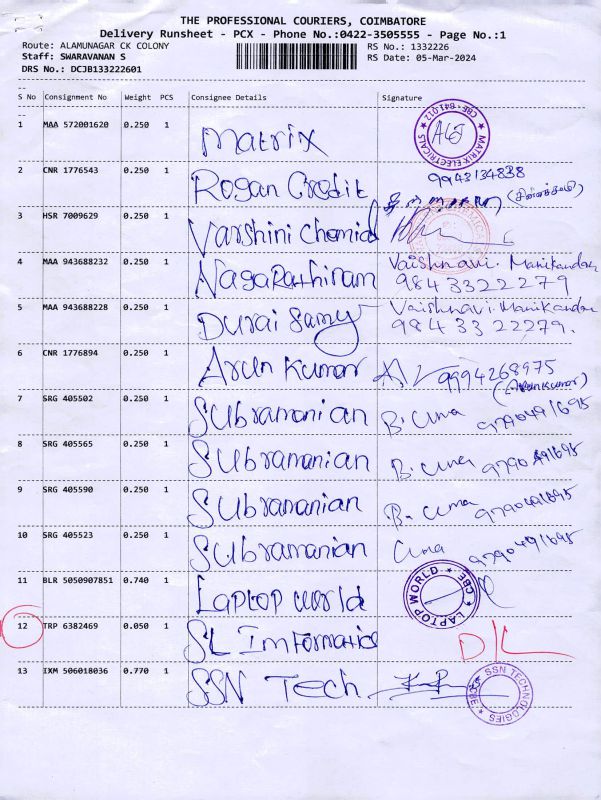 THE PROFESSIONAL COURIERS, COIMBATORE
Delivery Runsheet - PCX - Phone No.:0422-3505555 - Page No.:1
Route: ALAMUNAGAR CK COLONY
RS No.: 1332226
Staff: SWARAVANAN S
RS Date: 05-Mar-2024
DRS No.: DCJB133222601
S No Consignment No Weight PCS Consignee Details Signature
1 MAA 572001620 0.250 1 Matrix
MATRIX ELECTRICALS
2 CNR 1776543 0.250 1 Rogan Credit 9943134838
3 HSR 7009629 0.250 1 Varshini Chemid
4 MAA 943688232 0.250 1 Nagarathinam Vaishnavi. Manikandan
9843322279
5 MAA 943688228 0.250 1 Durai Samy Vaishnavi. Manikandan
9843322279.
6 CNR 1776894 0.250 1 Arun Kumar 9994268975
(Arunkumar)
7 SRG 405502 0.250 1 Subramanian B. Uma 9790491695
8 SRG 405565 0.250 1 Subramanian B. Uma 9790491695
9 SRG 405590 0.250 1 Subramanian B. Uma 9790491695
10 SRG 405523 0.250 1 Subramanian Uma 9790491695
11 BLR 5050907851 0.740 1 Laptop world
LAPTOP WORLD ★ CBE ★
12 TRP 6382469 0.050 1 SL Imformatics D/L
13 IXM 506018036 0.770 1 SSN Tech
SSN TECHNOLOGIES ★ CBE ★